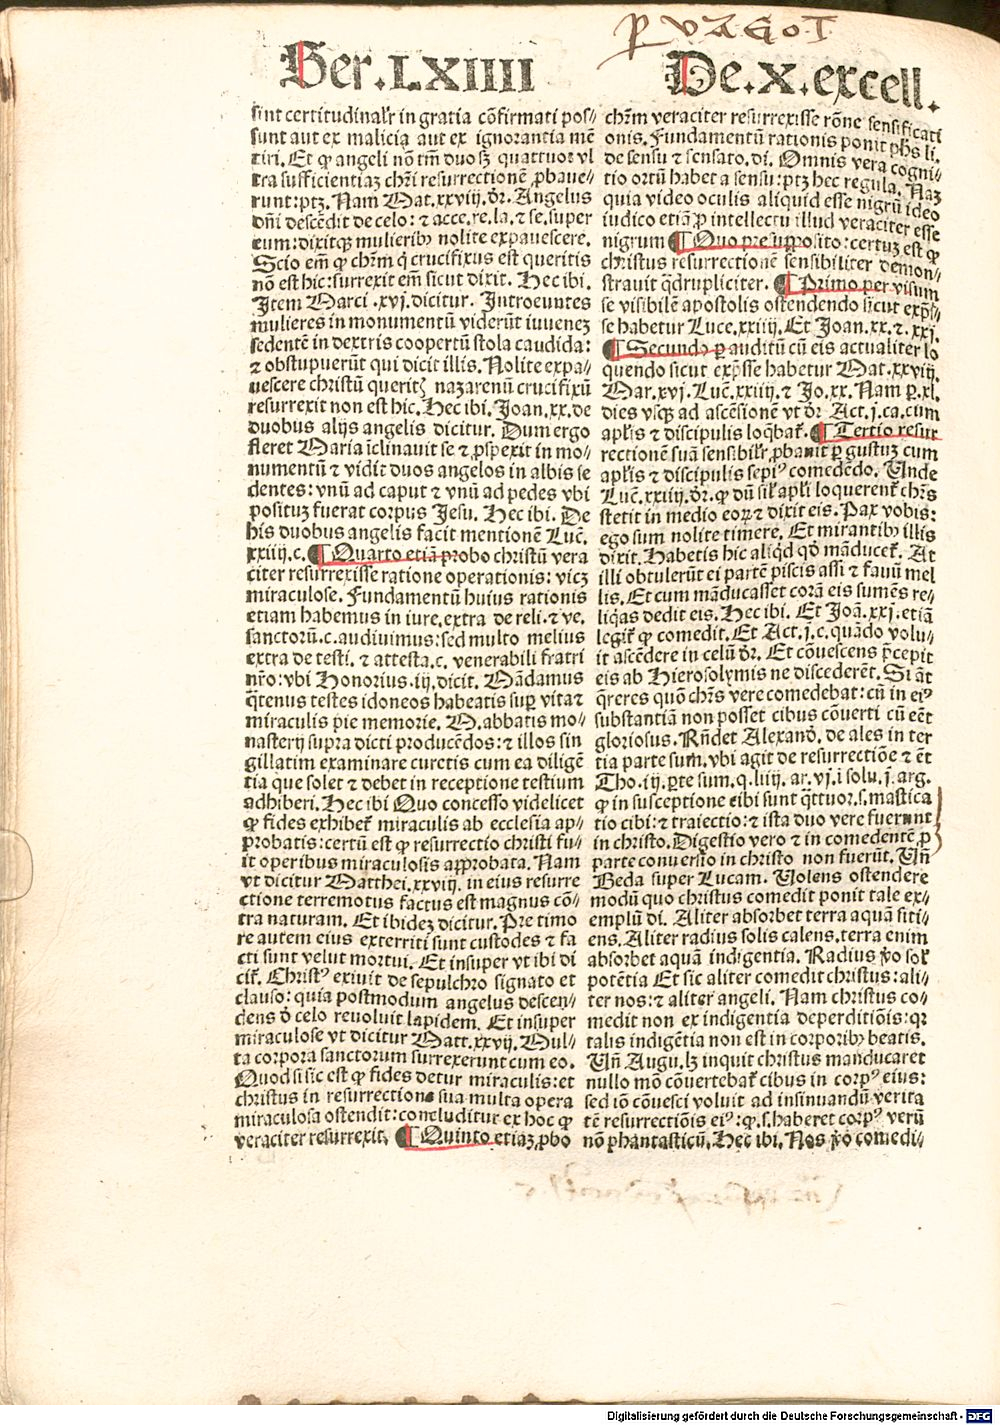 Ser.LXIIII
De.X.excell.
sint certitudinalr̃ in gratia cõfirmati pos⸗
sunt aut ex malicia aut ex ignorantia mẽ
tiri. Et ꝙ angeli nõ tm̃ duo sꝫ quattuor vl
tra sufficientiaꝫ chr̃i resurrectionẽ ꝓbaue⸗
runt: ptꝫ. Nam Mat.xxviij. dr̃. Angelus
dñi descẽdit de celo: ⁊ acce.re.la.⁊ se.super
eum: dixitqꝫ mulieribꝰ nolite expauescere.
Scio em̃ ꝙ chr̃m q̇ crucifixus est queritis
nõ est hic: surrexit em̃ sicut dixit. Hec ibi.
Item Marci .xvj. dicitur. Introeuntes
mulieres in monumentũ viderũt iuueneꝫ
sedentẽ in dextris coopertũ stola caudida:
⁊ obstupuerũt qui dicit illis. Nolite expa⸗
uescere christũ querit⁊ nazarenũ crucifixũ
resurrexit non est hic. Hec ibi. Joan.xx. de
duobus alijs angelis dicitur. Dum ergo
fleret Maria ĩclinauit se ⁊ ꝓspexit in mo⸗
numentũ ⁊ vidit duos angelos in albis se
dentes: vnũ ad caput ⁊ vnũ ad pedes vbi
posituꝫ fuerat corpus Jesu. Hec ibi. De
his duobus angelis facit mentionẽ Luc̃.
xxiiij.c. ¶ Quarto etiã probo christũ vera
citer resurrexisse ratione operationis: vicꝫ
miraculose. Fundamentũ huius rationis
etiam habemus in iure.extra de reli.⁊ ve.
sanctorũ.c.audiuimus: sed multo melius
extra de testi. ⁊ attesta.c. venerabili fratri
nr̃o: vbi Honorius .iij. dicit. Mãdamus
q̃tenus testes idoneos habeatis suꝑ vita⁊
miraculis pie memorie. M.abbatis mo⸗
nasterij supra dicti producẽdos: ⁊ illos sin
gillatim examinare curetis cum ea diligẽ
tia que solet ⁊ debet in receptione testium
adhiberi. Hec ibi Quo concesso videlicet
ꝙ fides exhibet̃ miraculis ab ecclesia ap⸗
probatis: certũ est ꝙ resurrectio christi fu⸗
it operibus miraculosis approbata. Nam
vt dicitur Matthei.xxviij. in eius resurre
ctione terremotus factus est magnus cõ⸗
tra naturam. Et ibideꝫ dicitur. Pre timo
re autem eius exterriti sunt custodes ⁊ fa
cti sunt velut mortui. Et insuper vt ibi di
cit̃. Christꝰ exiuit de sepulchro signato et
clauso: quia postmodum angelus descen⸗
dens d̾ celo reuoluit lapidem. Et insuper
miraculose vt dicitur Matt.xxvij. Mul⸗
ta corpora sanctorum surrexerunt cum eo.
Quod si sic est ꝙ fides detur miraculis: et
christus in resurrectione sua multa opera
miraculosa ostendit: concluditur ex hoc ꝙ
veraciter resurrexit. ¶ Quinto etiaꝫ.ꝓbo
chr̃m veraciter resurrexisse rõne sensificati
onis. Fundamentũ rationis ponit ph̃s li.
de sensu ⁊ sensato. di. Omnis vera cogni⸗
tio ortũ habet a sensu: ptꝫ hec regula. Naꝫ
quia video oculis aliquid esse nigrũ ideo
iudico etiã ꝑ intellectu illud veraciter esse
nigrum ¶ Quo presupposito: certuꝫ est ꝙ
christus resurrectionẽ sensibiliter demon⸗
strauit q̃drupliciter. ¶ Primo per visum
se visibilẽ apostolis ostendendo sicut exp̃s⸗
se habetur Luce.xxiiij. Et Joan.xx.⁊.xxj.
¶ Secundo ꝑ auditũ cũ eis actualiter lo
quendo sicut exp̃sse habetur Mat.xxviij.
Mar.xvj. Luc̃.xxiiij.⁊ Jo.xx. Nam ꝑ.xl.
dies vsqꝫ ad ascẽsionẽ vt dr̃ Act.j.ca.cum
apl̃is ⁊ discipulis loq̃bat̃. ¶ Tertio resur
rectionẽ suã sensibilr̃.ꝓbauit ꝑ gustuꝫ cum
apl̃is ⁊ discipulis sepiꝰ comedẽdo. Unde
Luc̃.xxiiij.dr̃. ꝙ dũ sil̃ apl̃i loquerent̃ chr̃s
stetit in medio eoꝝ ⁊ dixit eis. Pax vobis:
ego sum nolite timere. Et mirantibꝰ illis
dixit. Habetis hic aliq̇d qd̾ mãducet̃. At
illi obtulerũt ei partẽ piscis assi ⁊ fauũ mel
lis. Et cum mãducasset corã eis sumẽs re⸗
liq̇as dedit eis. Hec ibi. Et Joã.xxj. etiã
legit̃ ꝙ comedit. Et Act.j.c. quãdo volu⸗
it ascẽdere in celũ dr̃. Et cõuescens p̃cepit
eis ab Hierosolymis ne discederẽt. Si aũt
q̃reres quõ chr̃s vere comedebat: cũ in eiꝰ
substantiã non posset cibus cõuerti cũ eẽt
gloriosus. Rñdet Alexand̾. de ales in ter
tia parte sum. vbi agit de resurrectiõe ⁊ ẽt
Tho.iij.ꝑte sum.q.liiij.ar.vj.i solu.j.arg.
ꝙ in susceptione cibi sunt q̃ttuor.s.mastica
tio cibi: ⁊ traiectio: ⁊ ista duo vere fuerunt
in christo. Digestio vero ⁊ in comedentẽ ꝓ
parte conuersio in christo non fuerũt. Uñ
Beda super Lucam. Uolens ostendere
modũ quo christus comedit ponit tale ex⸗
emplũ di. Aliter absorbet terra aquã siti⸗
ens. Aliter radius solis calens. terra enim
absorbet aquã indigentia. Radius ṽo sol̃
potẽtia Et sic aliter comedit christus: ali⸗
ter nos: ⁊ aliter angeli. Nam christus co⸗
medit non ex indigentia deperditiõis: qꝛ
talis indigẽtia non est in corporibꝰ beatis.
Uñ Augu. lꝫ inquit christus manducaret
nullo mõ cõuertebat̃ cibus in corpꝰ eius:
sed iõ cõuesci voluit ad insinuandũ verita
tẽ resurrectiõis eiꝰ: ꝙ.s.haberet corpꝰ verũ
nõ phantasticũ. Hec ibi. Nos ṽo comedi⸗
Digitalisierung gefördert durch die Deutsche Forschungsgemeinschaft - DFG